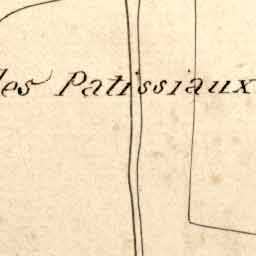 les Patissiaux